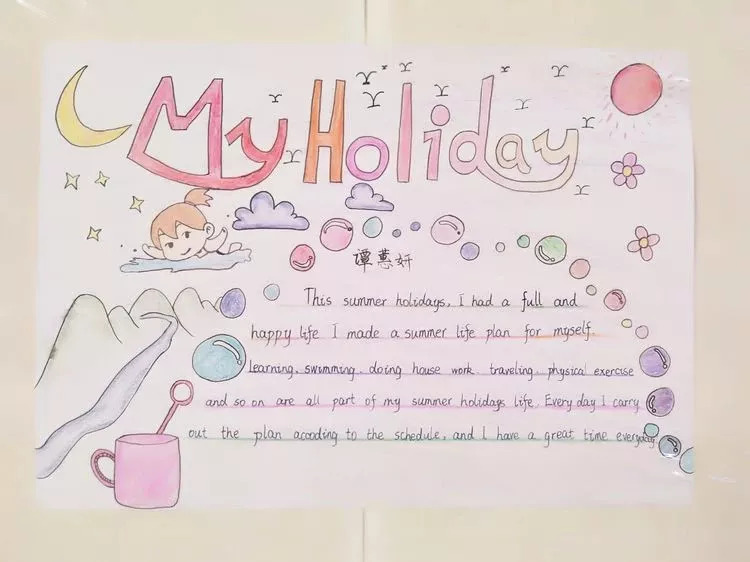 My Holiday
谭蕙妍
This summer holidays, I had a full and
happy life I made a summer life plan for myself.
learning, swimming, doing house work, traveling, physical exercise
and so on are all part of my summer holidays life. Every day I carry
out the plan acoding to the schedule, and I have a great time everyday.